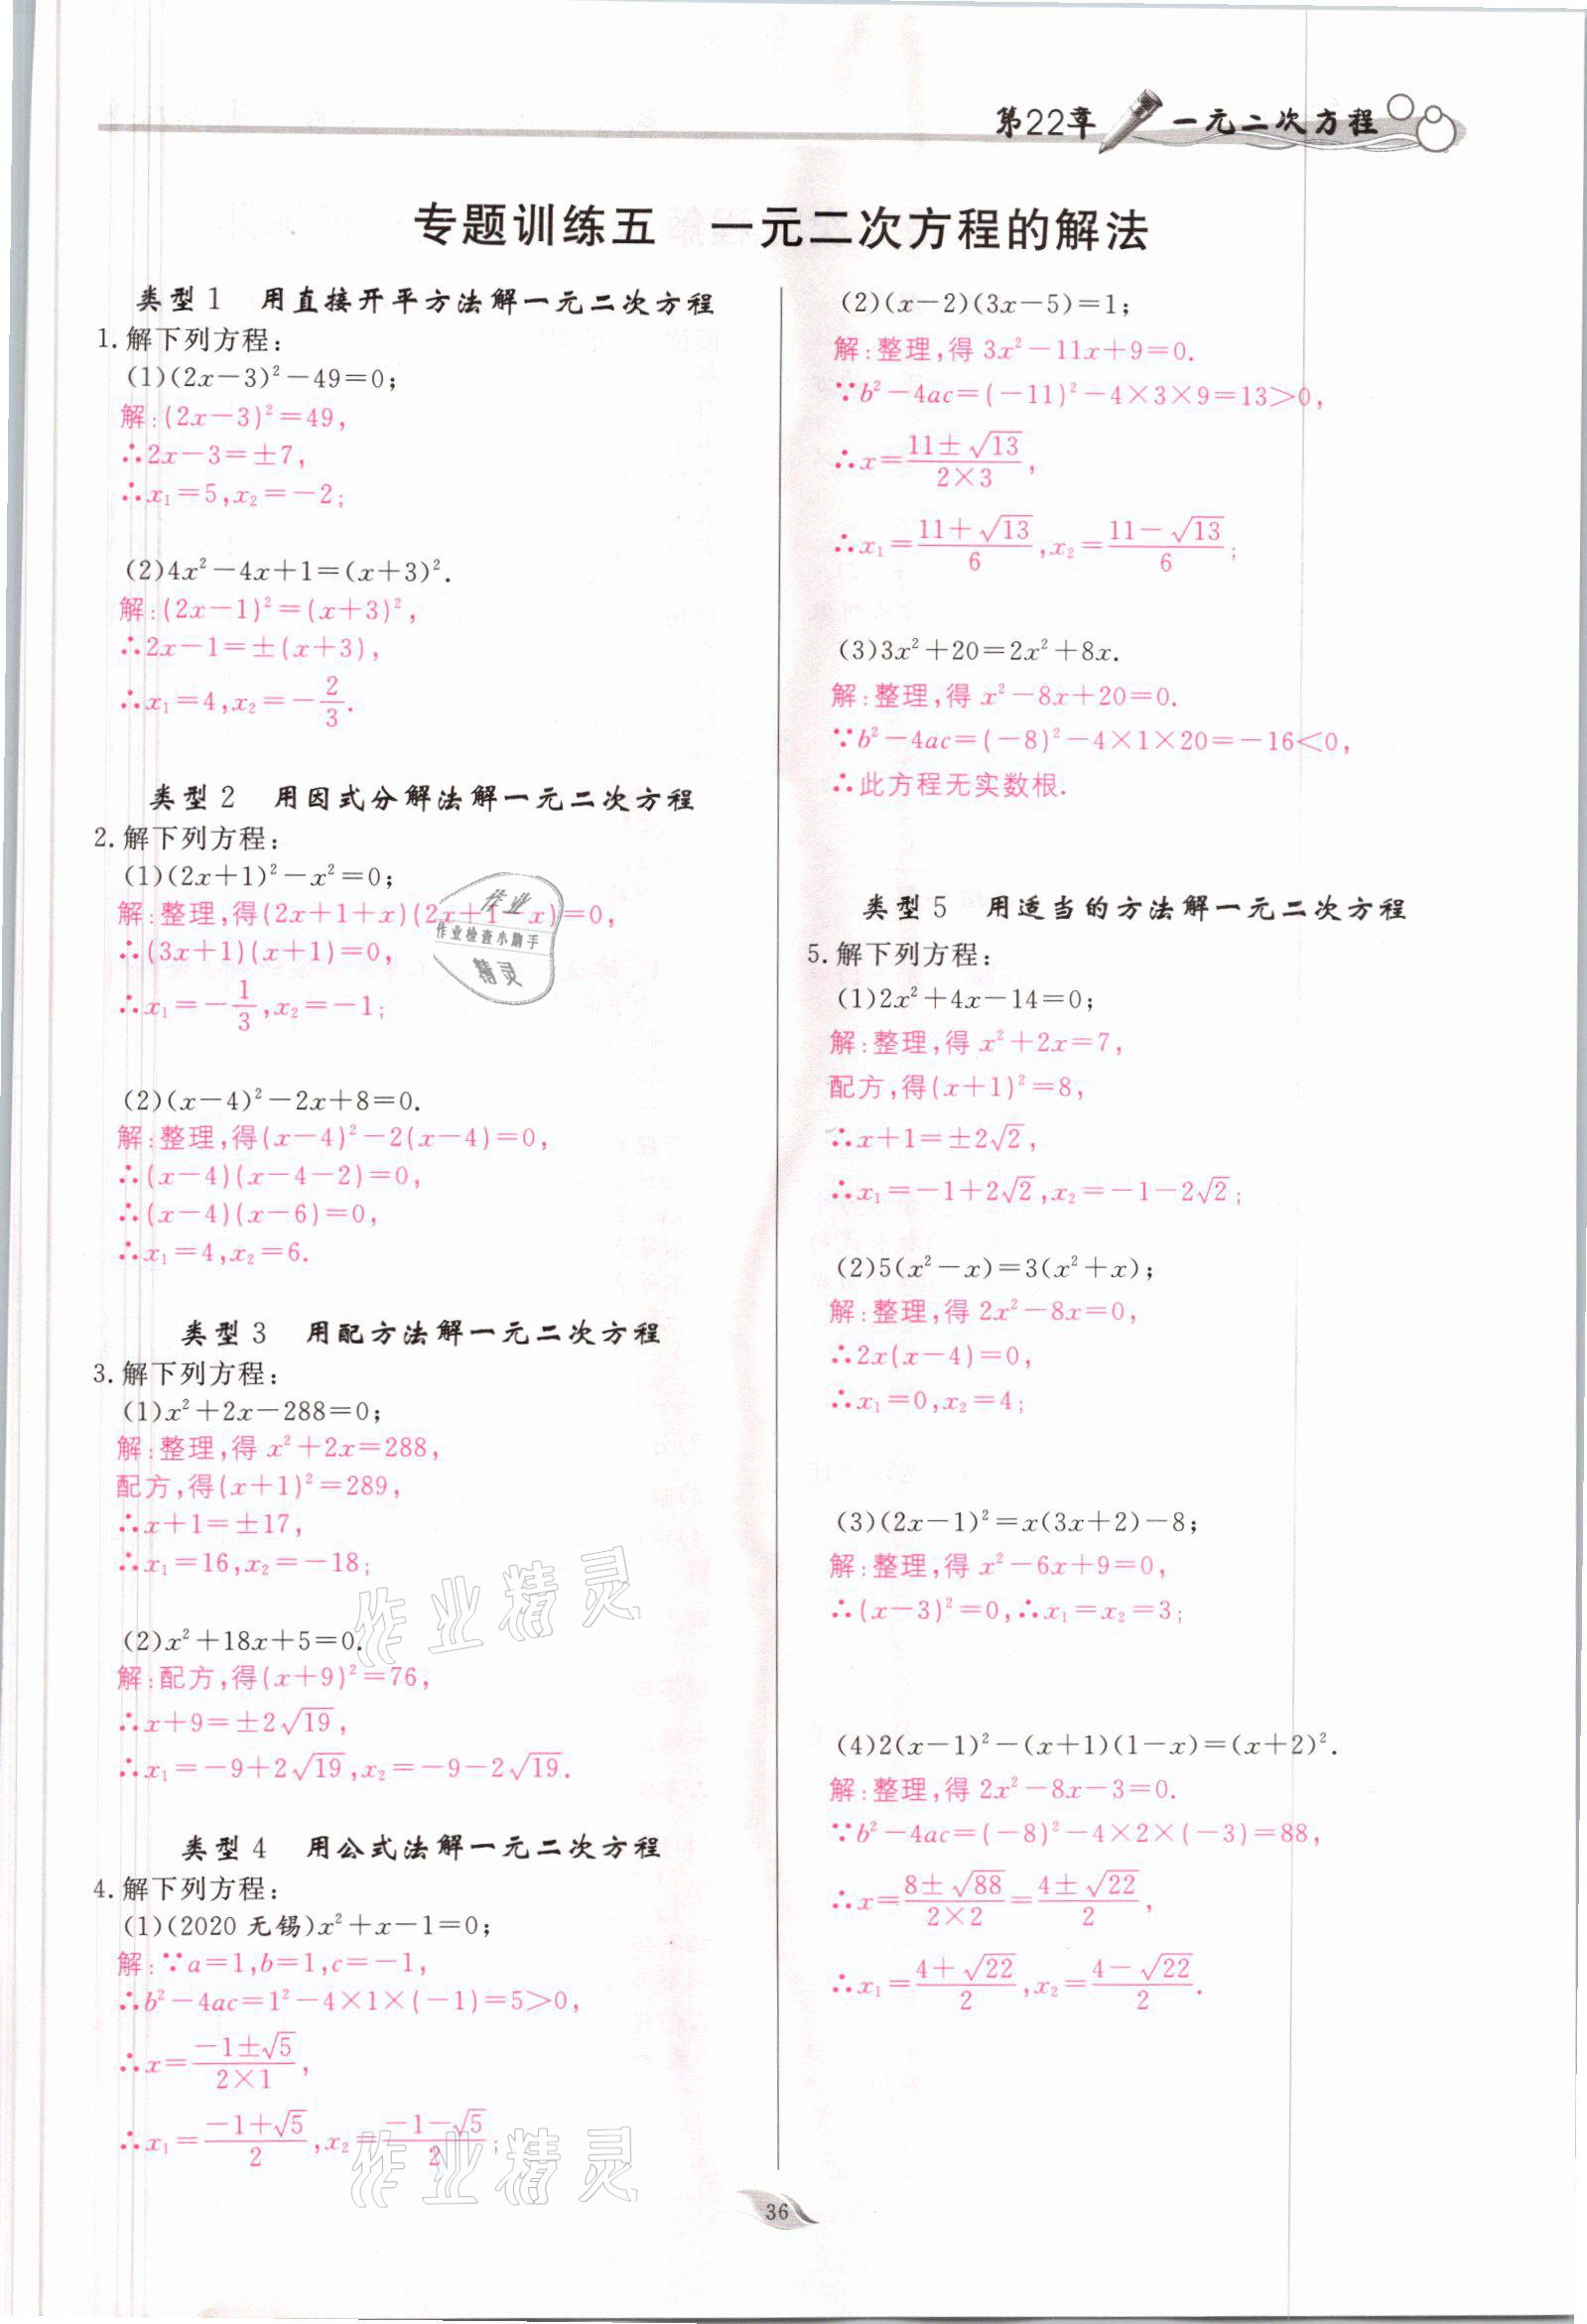 第22章 一元二次方程
专题训练五 一元二次方程的解法
类型1 用直接开平方法解一元二次方程
1.解下列方程：
(1)(2x－3)²－49＝0；
解：(2x－3)²＝49，
∴2x－3＝±7，
∴x₁＝5，x₂＝－2；
(2)4x²－4x＋1＝(x＋3)².
解：(2x－1)²＝(x＋3)²，
∴2x－1＝±(x＋3)，
∴x₁＝4，x₂＝－2/3.
类型2 用因式分解法解一元二次方程
2.解下列方程：
(1)(2x＋1)²－x²＝0；
解：整理，得(2x＋1＋x)(2x＋1－x)＝0，
∴(3x＋1)(x＋1)＝0，
∴x₁＝－1/3，x₂＝－1；
(2)(x－4)²－2x＋8＝0.
解：整理，得(x－4)²－2(x－4)＝0，
∴(x－4)(x－4－2)＝0，
∴(x－4)(x－6)＝0，
∴x₁＝4，x₂＝6.
类型3 用配方法解一元二次方程
3.解下列方程：
(1)x²＋2x－288＝0；
解：整理，得 x²＋2x＝288，
配方，得(x＋1)²＝289，
∴x＋1＝±17，
∴x₁＝16，x₂＝－18；
(2)x²＋18x＋5＝0.
解：配方，得(x＋9)²＝76，
∴x＋9＝±2√19，
∴x₁＝－9＋2√19，x₂＝－9－2√19.
类型4 用公式法解一元二次方程
4.解下列方程：
(1)(2020 无锡)x²＋x－1＝0；
解：∵a＝1，b＝1，c＝－1，
∴b²－4ac＝1²－4×1×(－1)＝5＞0，
∴x＝(－1±√5)/(2×1)，
∴x₁＝(－1＋√5)/2，x₂＝(－1－√5)/2；
(2)(x－2)(3x－5)＝1；
解：整理，得 3x²－11x＋9＝0.
∵b²－4ac＝(－11)²－4×3×9＝13＞0，
∴x＝(11±√13)/(2×3)，
∴x₁＝(11＋√13)/6，x₂＝(11－√13)/6；
(3)3x²＋20＝2x²＋8x.
解：整理，得 x²－8x＋20＝0.
∵b²－4ac＝(－8)²－4×1×20＝－16＜0，
∴此方程无实数根.
类型5 用适当的方法解一元二次方程
5.解下列方程：
(1)2x²＋4x－14＝0；
解：整理，得 x²＋2x＝7，
配方，得(x＋1)²＝8，
∴x＋1＝±2√2，
∴x₁＝－1＋2√2，x₂＝－1－2√2；
(2)5(x²－x)＝3(x²＋x)；
解：整理，得 2x²－8x＝0，
∴2x(x－4)＝0，
∴x₁＝0，x₂＝4；
(3)(2x－1)²＝x(3x＋2)－8；
解：整理，得 x²－6x＋9＝0，
∴(x－3)²＝0，∴x₁＝x₂＝3；
(4)2(x－1)²－(x＋1)(1－x)＝(x＋2)².
解：整理，得 2x²－8x－3＝0.
∵b²－4ac＝(－8)²－4×2×(－3)＝88，
∴x＝(8±√88)/(2×2)＝(4±√22)/2，
∴x₁＝(4＋√22)/2，x₂＝(4－√22)/2.
36
作业
作业检查小助手
精灵
作业精灵
作业精灵